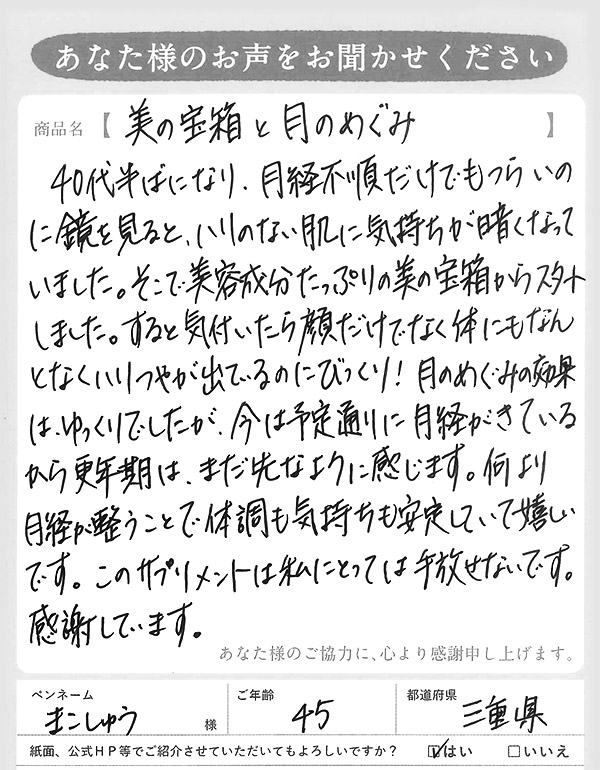 あなた様のお声をお聞かせください
商品名【 美の宝箱と月のめぐみ 】
40代半ばになり、月経不順だけでもつらいの
に鏡を見ると、ハリのない肌に気持ちが暗くなって
いました。そこで美容成分たっぷりの美の宝箱からスタート
しました。すると気付いたら顔だけでなく体にもなん
となくハリつやが出ているのにびっくり！月のめぐみの効果
は、ゆっくりでしたが、今は予定通りに月経がきている
から更年期は、まだ先なように感じます。何より
月経が整うことで体調も気持ちも安定していて嬉しい
です。このサプリメントは私にとっては手放せないです。
感謝しています。
あなた様のご協力に、心より感謝申し上げます。
ペンネーム ご年齢 都道府県
まこしゅう 様 45 三重県
紙面、公式HP等でご紹介させていただいてもよろしいですか？ ☑はい □いいえ